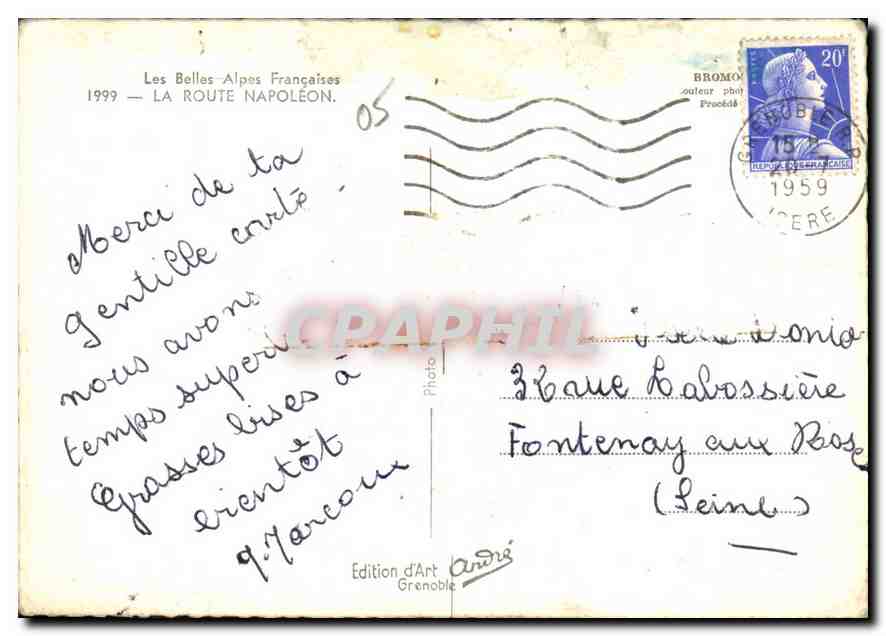 Les Belles Alpes Françaises
1999 — LA ROUTE NAPOLÉON.
05
BROMO
Procédé
20F
POSTES
REPUBLIQUE FRANÇAISE
GRENOBLE R.P.
15 H
1959
ISERE
Merci de ta
gentille carte.
nous avons
temps super
Grosses bises à
bientôt
J. Marcoux
CPAPHIL
32 rue Labossière
Fontenay aux Rose
(Seine)
Photo
Edition d'Art André
Grenoble